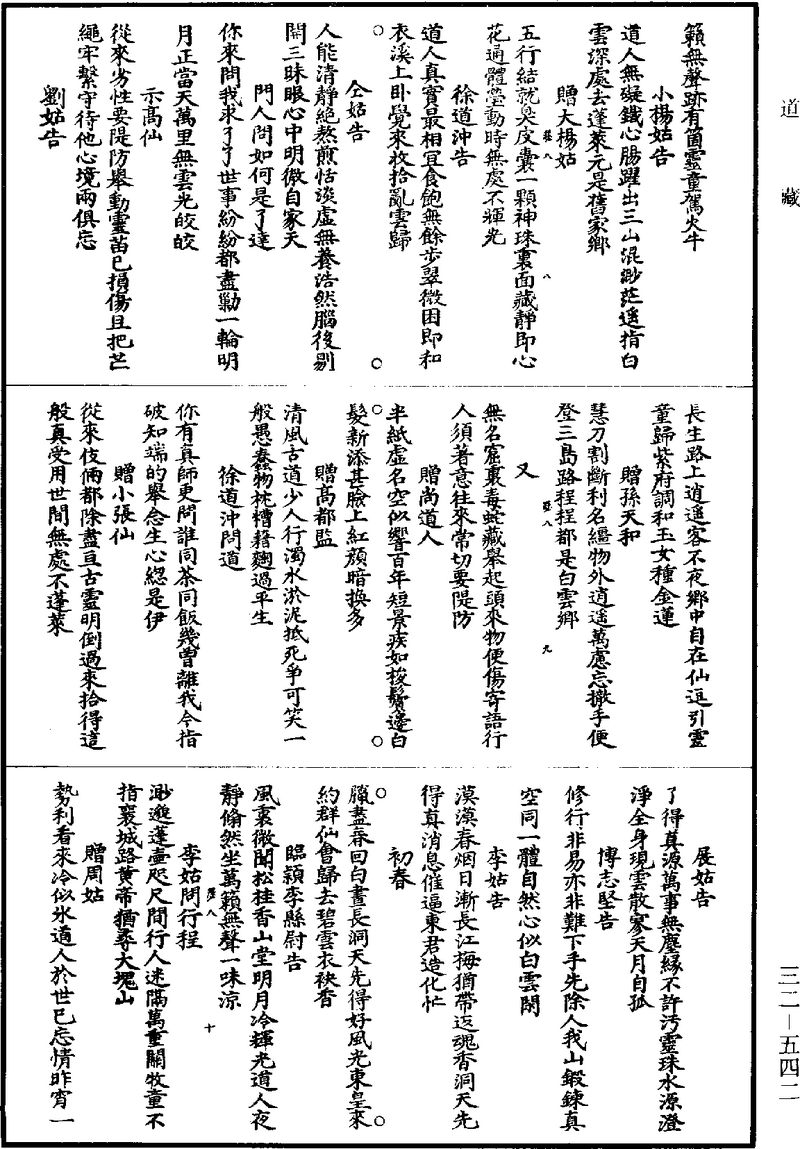 道藏
籟無聲跡有箇靈童駕火牛
小楊姑告
道人無礙鐵心腸躍出三山混渺茫遙指白
雲深處去蓬萊元是舊家鄉
贈大楊姑
五行結就臭皮囊一顆神珠裏面藏靜即心
花通體瑩動時無處不輝光
徐道沖告
道人真實最相宜食飽無餘步翠微困即和
衣溪上卧覺來收拾亂雲歸
仝姑告
人能清靜絕熬煎恬淡虛無養浩然腦後剔
開三昧眼心中明徹自家天
門人問如何是了達
你來問我求了了世事紛紛都盡勦一輪明
月正當天萬里無雲光皎皎
示高仙
從來劣性要隄防舉動靈苗已損傷且把芒
繩牢繫守待他心境兩俱忘
劉姑告
長生路上逍遙客不夜鄉中自在仙逗引靈
童歸紫府調和玉女種金蓮
贈孫天和
慧刀割斷利名繮物外逍遙萬慮忘撒手便
登三島路程程都是白雲鄉
又
無名窟裏毒蛇藏舉起頭來物便傷寄語行
人須著意往來常切要隄防
贈尚道人
半紙虛名空似響百年短景疾如梭鬢邊白
髮新添甚臉上紅顏暗換多
贈高都監
清風古道少人行濁水淤泥抵死爭可笑一
般愚蠢物枕糟藉麴過平生
徐道沖問道
你有真師更問誰同茶同飯幾曾離我今指
破知端的舉念生心緫是伊
贈小張仙
從來伎倆都除盡亘古靈明倒過來拾得這
般真受用世間無處不蓬萊
展姑告
了得真源萬事無塵緣不許污靈珠水源澄
淨全身現雲散寥天月自孤
傅志堅告
修行非易亦非難下手先除人我山鍛鍊真
空同一體自然心似白雲閑
李姑告
漠漠春烟日漸長江梅猶帶返魂香洞天先
得真消息催逼東君造化忙
初春
臘盡春回白晝長洞天先得好風光東皇來
約群仙會歸去碧雲衣袂香
臨潁李縣尉告
風裏微聞松桂香山堂明月冷輝光道人夜
靜翛然坐萬籟無聲一味涼
李姑問行程
渺邈蓬壺咫尺間行人迷隔萬重關牧童不
指襄城路黄帝猶尋大塊山
贈周姑
勢利看來冷似氷道人於世已忘情昨宵一
三二－五四二